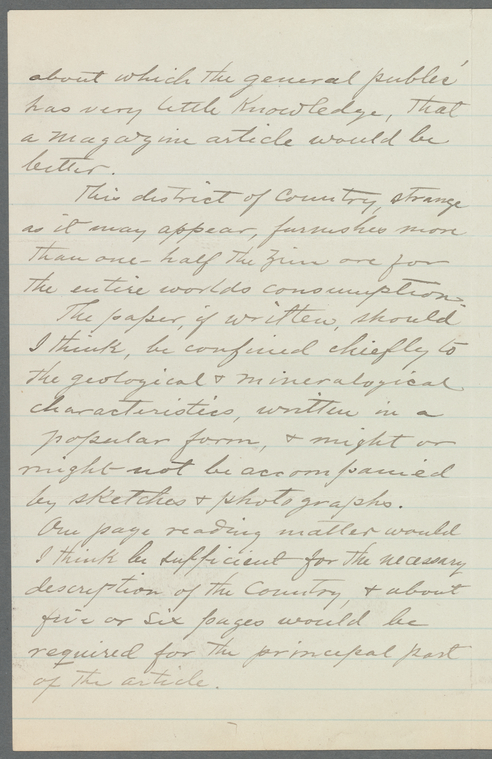 about which the general public
has very little Knowledge, that
a magazine article would be
better.
This district of Country, strange
as it may appear, furnishes more
than one-half the Zinc ore for
the entire worlds consumption.
The paper, if written, should
I think, be confined chiefly to
the geological & mineralogical
characteristics, written in a
popular form, & might or
might not be accompanied
by sketches & photographs.
One page reading matter would
I think be sufficient for the necessary
description of the Country, & about
five or six pages would be
required for the principal part
of the article.